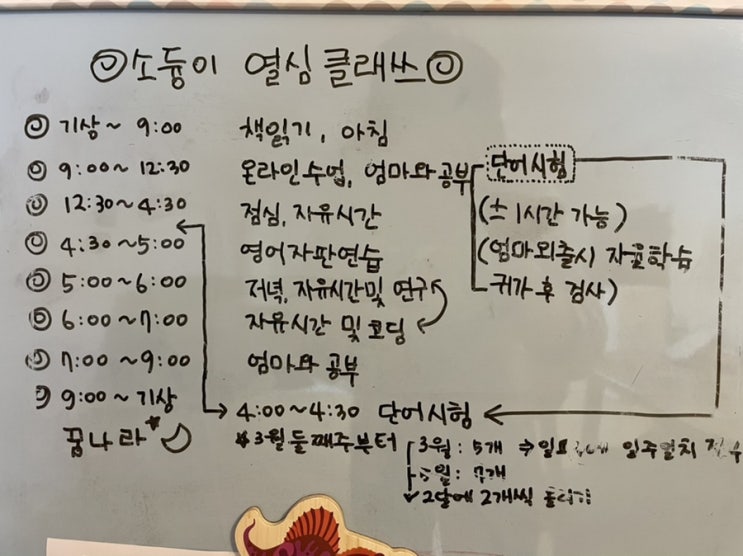 소듕이 열심 클래쓰
기상~ 9:00 책읽기, 아침
9:00~ 12:30 온라인수업, 엄마와 공부 단어시험
12:30~4:30 점심, 자유시간 (± 1시간 가능)
4:30~5:00 영어자판연습 (엄마외출시 자율학습
5:00~6:00 저녁, 자유시간및 연구 귀가 후 검사)
6:00~7:00 자유시간 및 코딩
7:00~9:00 엄마와 공부
9:00~ 기상
꿈나라
4:00~4:30 단어시험
*3월 둘째주부터 3월: 5개 ⇒ 일주일치
2달에 2개씩